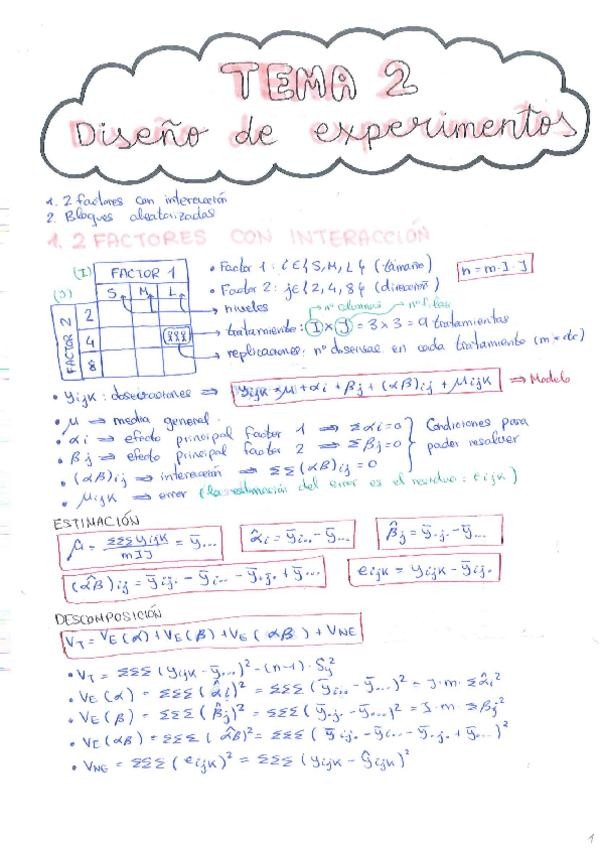 TEMA 2
Diseño de experimentos
1. 2 factores con interacción
2. Bloques aleatorizados
1. 2 FACTORES CON INTERACCIÓN
(I) FACTOR 1
(J) S M L
FACTOR 2
2
4
8
• Factor 1: i∈{S, M, L} (tamaño)
n = m·I·J
• Factor 2: j∈{2, 4, 8} (dirección)
→ niveles
nº columnas
nº filas
→ tratamiento: I × J = 3 × 3 = 9 tratamientos
→ replicaciones: nº observac. en cada tratamiento (m = cte)
• yijk: observaciones ⇒ yijk = μ + αi + βj + (αβ)ij + μijk ⇒ Modelo
• μ ⇒ media general.
• αi ⇒ efecto principal factor 1 ⇒ Σαi=0
• βj ⇒ efecto principal factor 2 ⇒ Σβj=0
• (αβ)ij ⇒ interacción ⇒ ΣΣ(αβ)ij = 0
Condiciones para
poder resolver
• μijk ⇒ error (la estimación del error es el residuo: eijk)
ESTIMACIÓN
μ̂ = ΣΣΣyijk / mIJ = ȳ...
α̂i = ȳi.. - ȳ...
β̂j = ȳ.j. - ȳ...
(α̂β)ij = ȳij. - ȳi.. - ȳ.j. + ȳ...
eijk = yijk - ȳij.
DESCOMPOSICIÓN
VT = VE(α) + VE(β) + VE(αβ) + VNE
• VT = ΣΣΣ(yijk - ȳ...)² = (n-1)·Ŝy²
• VE(α) = ΣΣΣ(α̂i)² = ΣΣΣ(ȳi.. - ȳ...)² = J·m·Σα̂i²
• VE(β) = ΣΣΣ(β̂j)² = ΣΣΣ(ȳ.j. - ȳ...)² = I·m·Σβ̂j²
• VE(αβ) = ΣΣΣ(α̂β)² = ΣΣΣ(ȳij. - ȳi.. - ȳ.j. + ȳ...)²
• VNE = ΣΣΣ(eijk)² = ΣΣΣ(yijk - ŷijk)²
1